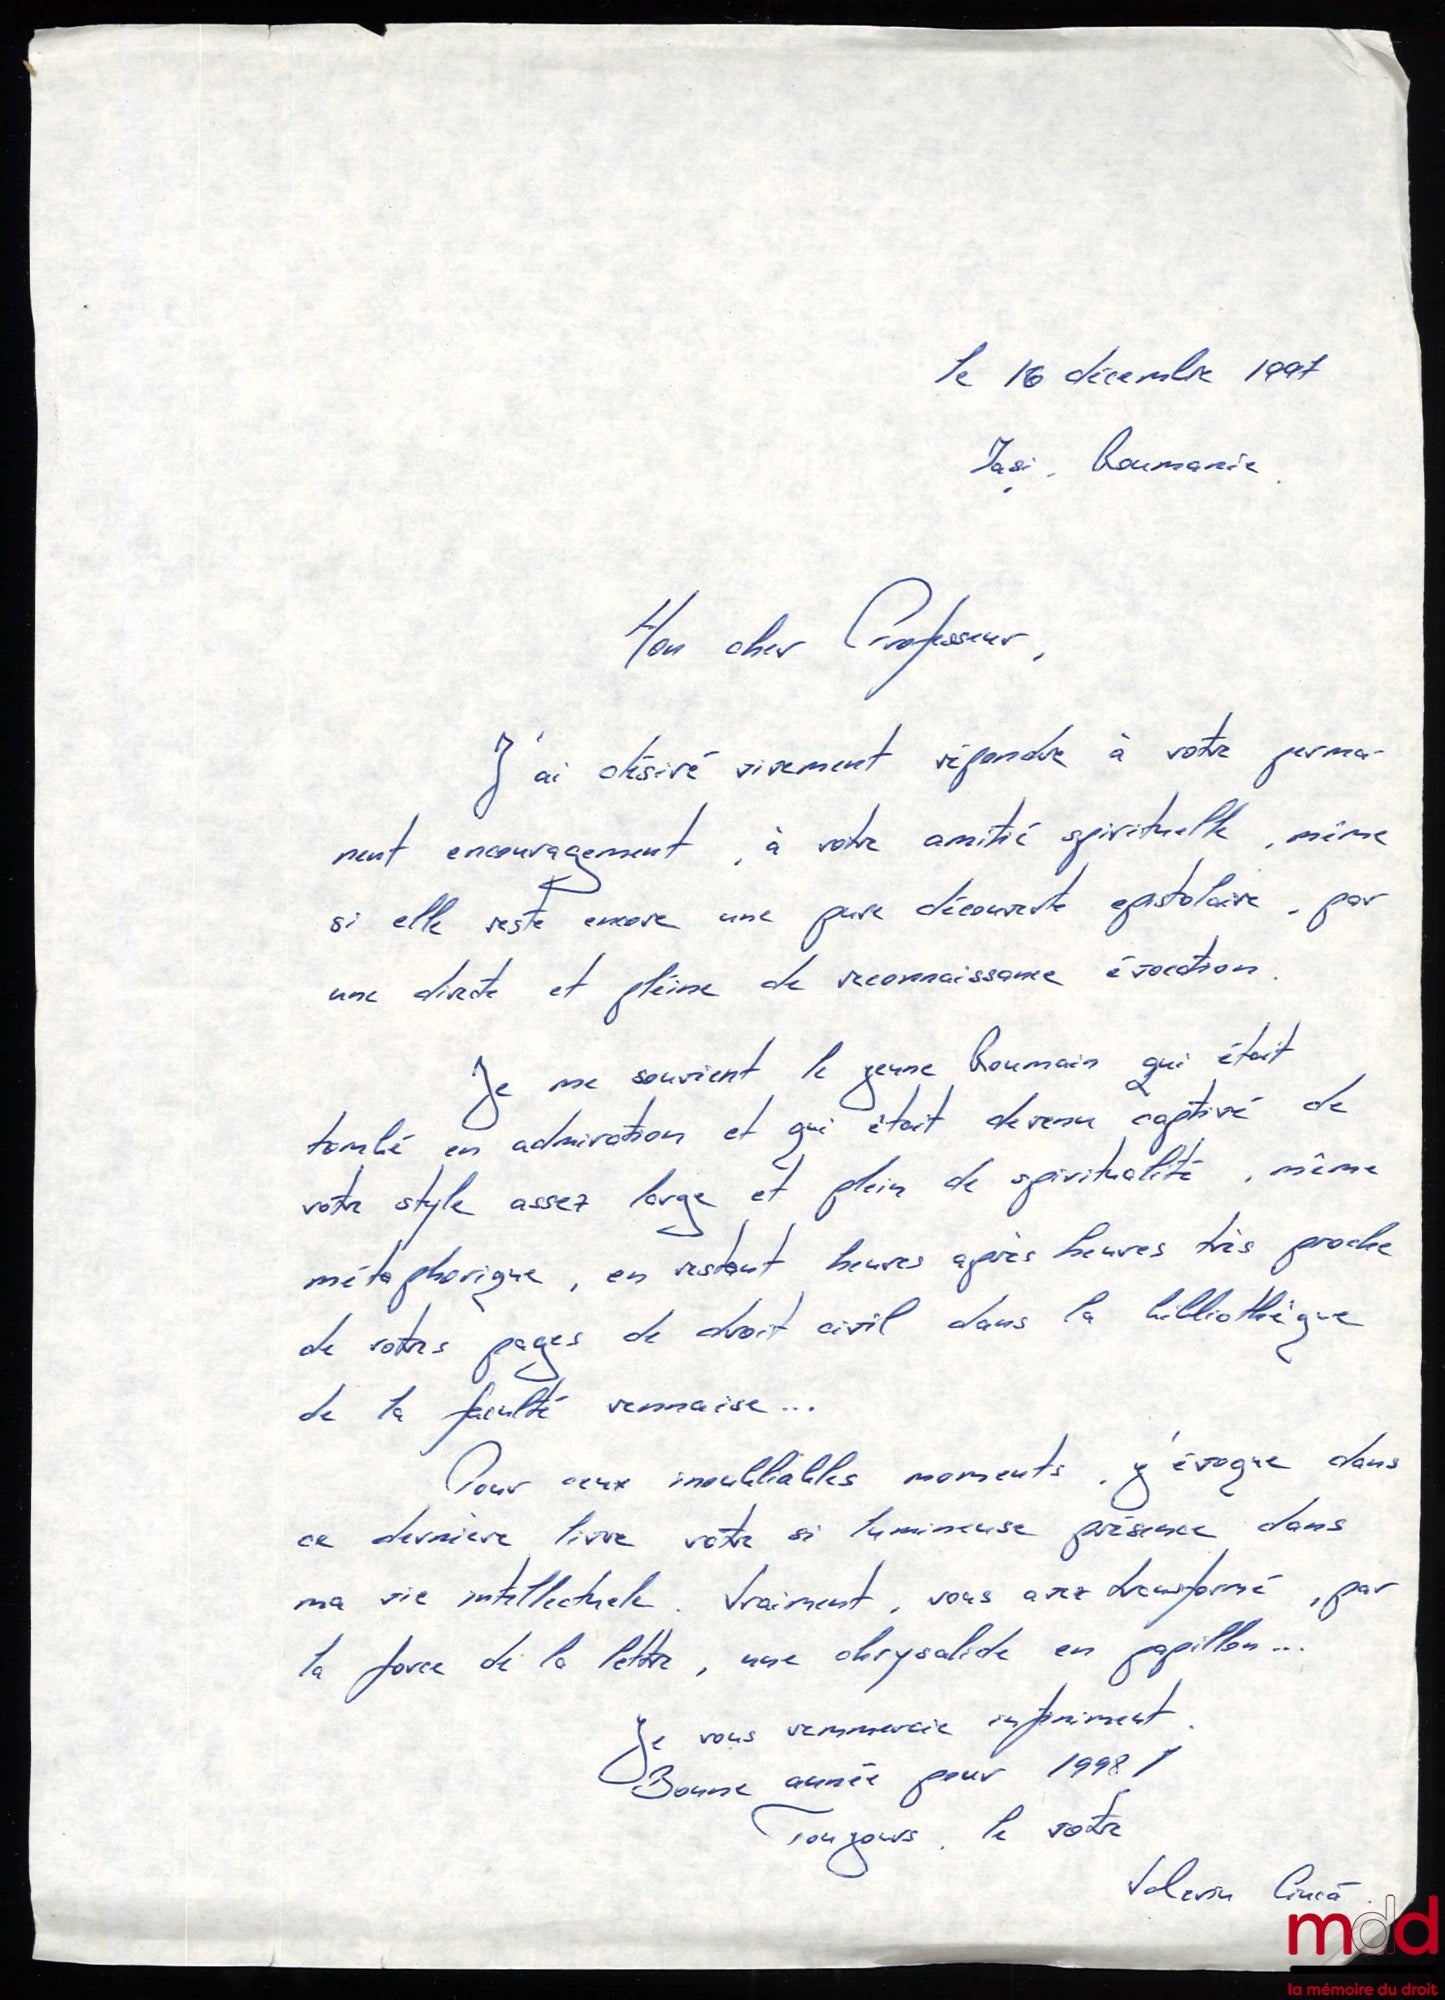 le 16 décembre 1997
Iași, Roumanie.
Mon cher Professeur,
J'ai désiré vivement répondre à votre perma-
nent encouragement, à votre amitié spirituelle, même
si elle reste encore une pure découverte epistolaire, par
une directe et pléine de reconnaissance évocation.
Je me souvient le jeune Roumain qui était
tombé en admiration et qui était devenu captivé de
votre style assez large et plein de spiritualité, même
métaphorique, en restant heures après heures très proche
de votres pages de droit civil dans la bibliothèque
de la faculté rennaise...
Pour ceux inoubliables moments, j'évoque dans
ce dernière livre votre si lumineuse présence dans
ma vie intellectuele. Vraiment, vous avez transformé, par
la force de la lettre, une chrysalide en papillon...
Je vous remmercie infiniment.
Bonne année pour 1998!
Toujours, le votre
Valeriu Ciucă
mdd
la mémoire du droit